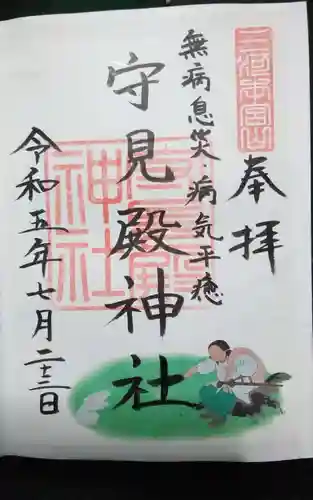 奉拝
三河本宮山
無病息災・病気平癒
守見殿神社
守見殿神社
令和五年七月二十三日